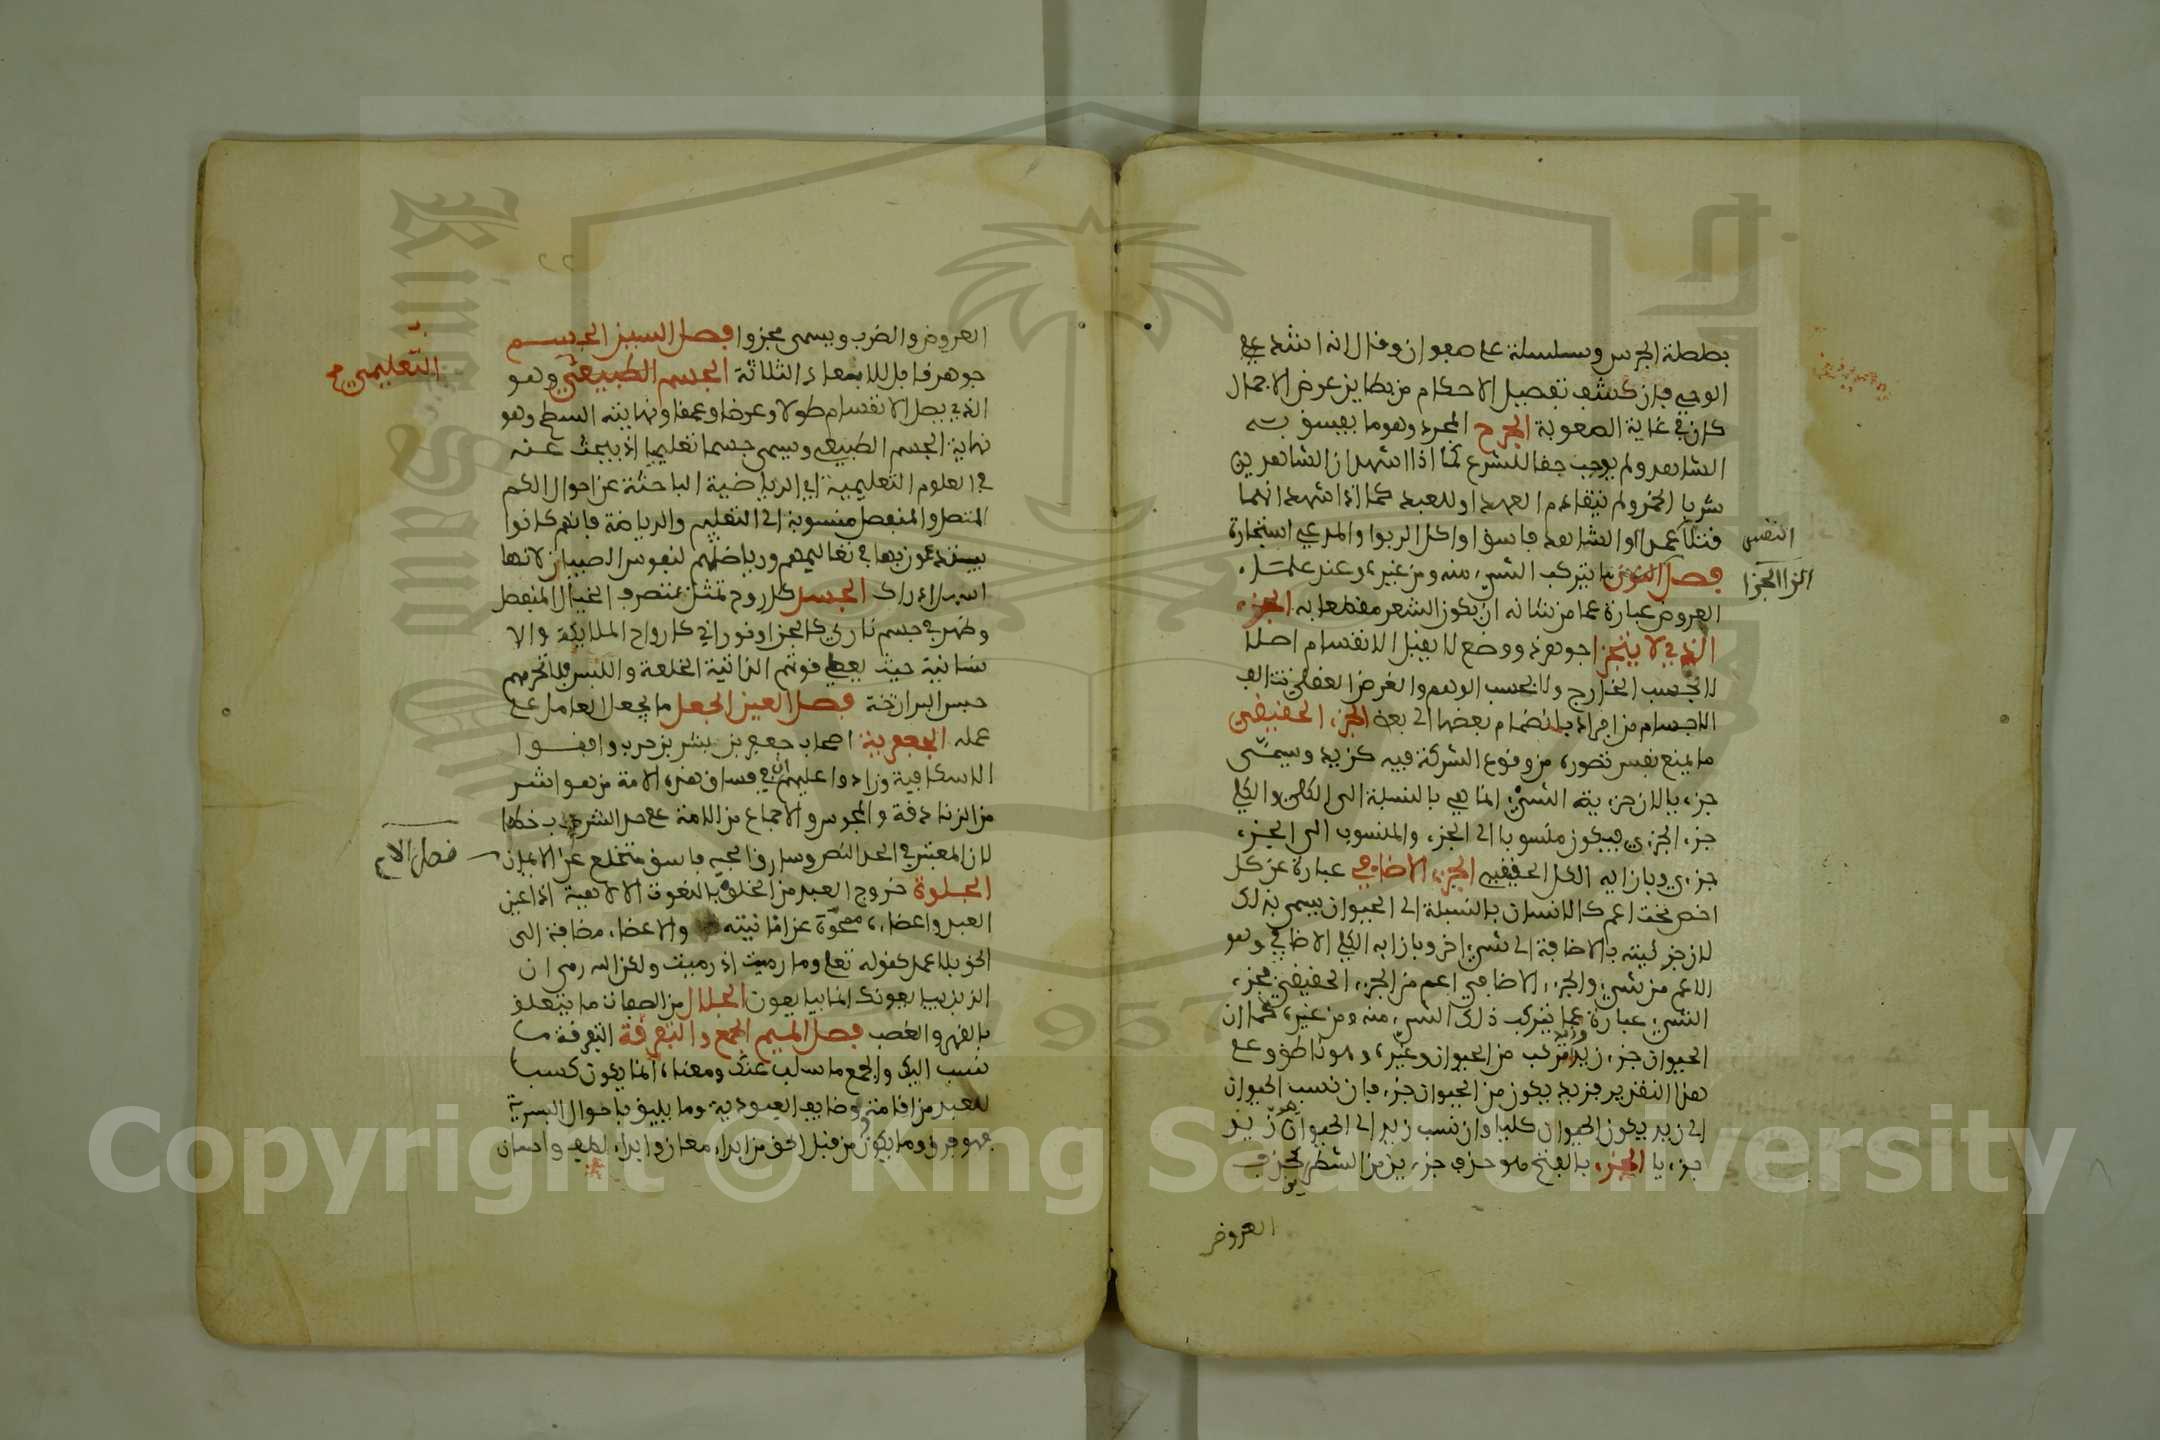 بططة الجرس وسلسلة على صفوان وقال انه اشد علي
الوحي فان كشف تفصيل الاحكام من بطاين غموض الاجمال
كان في غاية الصعوبة الجرح المجرد وهو ما يفسق به
الشاهد ولم يوجب حقا للشرع كما اذا شهد ان الشاهدين
شربا الخمر ولم يتقادم العهد او للعبد كما اذا شهد انهما
قتلا عمدا او الشاهد فاسق او اكل الربوا والمدعي استجاره
النفس
فصل الزا الجزا
فصل الزا ما يتركب الشيء منه ومن غيره وعند علماء
العروض عبارة عما من شانه ان يكون الشعر مقطعا به الجزء
الذي لا يتجزا جوهر ذو وضع لا يقبل الانقسام اصلا
لا بحسب الخارج ولا بحسب الوهم والفرض العقلي تتالف
الاجسام من افراده بانضمام بعضها الى بعض الجزء الحقيقي
ما يمنع نفس تصوره من وقوع الشركة فيه كزيد ويسمى
جزءيا لان جزءية الشيء انما هي بالنسبة الى الكلي والكلي
جزء الجزءي فيكون منسوبا الى الجزء والمنسوب الى الجزء
جزءي وبازايه الكلي الحقيقي الجزء الاضافي عبارة عن كل
اخص تحت اعم كالانسان بالنسبة الى الحيوان يسمى بذلك
لان جزئيته بالاضافة الى شيء اخر وبازايه الكلي الاضافي وهو
الاعم من شيء والجزء الاضافي اعم من الجزء الحقيقي فجزء
الشيء عبارة عما يتركب ذلك الشيء منه ومن غيره كما ان
الحيوان جزء زيد وزيد مركب من الحيوان وغيره وهو ناطق وعلى
هذا التقرير فزيد يكون من الحيوان جزء فان نسب الحيوان
الى زيد يكون الحيوان كليا وان نسب زيد الى الحيوان يكون زيد
جزءيا الجزء بالفتح هو حذف جزءين من الشطرين كحذف
العروض
العروض والضرب ويسمى مجزوا فصل السين الجسم
جوهر قابل للابعاد الثلاثة الجسم الطبيعي وهو
التعليمي
الذي يقبل الانقسام طولا وعرضا وعمقا ونهايته السطح وهو
نهاية الجسم الطبيعي ويسمى جسما تعليميا اذ يبحث عنه
في العلوم التعليمية اي الرياضية الباحثة عن احوال الكم
المتصل والمنفصل منسوبة الى التعليم والرياضة فانهم كانوا
يبتدءون بها في تعاليمهم ورياضتهم لنفوس الصبيان لانها
اسهل ادراك الجسد كل روح تمثل بتصرف الخيال المنفصل
وظهر في جسم ناري كالجن او نوراني كارواح الملايكة والا
نسانية حيث يعطي قوتهم الذاتية الخلعة واللبس فلا تحصرهم
حبس البرازخ فصل العين الجعل ما يجعل للعامل على
عمله الجعفرية اصحاب جعفر بن بشر بن حرب وافقوا
الاسكافية وزادوا عليهم ان في فساق هذه الامة من هو اشر
من الزنادقة والمجوس والاجماع من الامة على حد الشرب خطا
لان المعتبر في الحد النص وسارق الحبة فاسق متخلع عن الايمان
فصل اللام
الجلوة خروج العبد من الخلوة بالنعوت الالاهية اذ عين
العبد واعضاءه ممحوة عن انانيته والاعضاء مضافة الى
الحق بلا عبد كقوله تعلى وما رميت اذ رميت ولكن الله رمى ان
الذين يبايعونك انما يبايعون الجلال من الصفات ما يتعلق
بالقهر والغضب فصل الميم الجمع والتفرقة التفرقة ما
نسب اليك والجمع ما سلب عنك ومعناه انما يكون كسبا
للعبد من اقامة وضايف العبودية وما يليق باحوال البشرية
فهو فرق وما يكون من قبل الحق من ابداء معان وابداء لطف واحسان
Copyright © King Saud University
King Saud University
1957